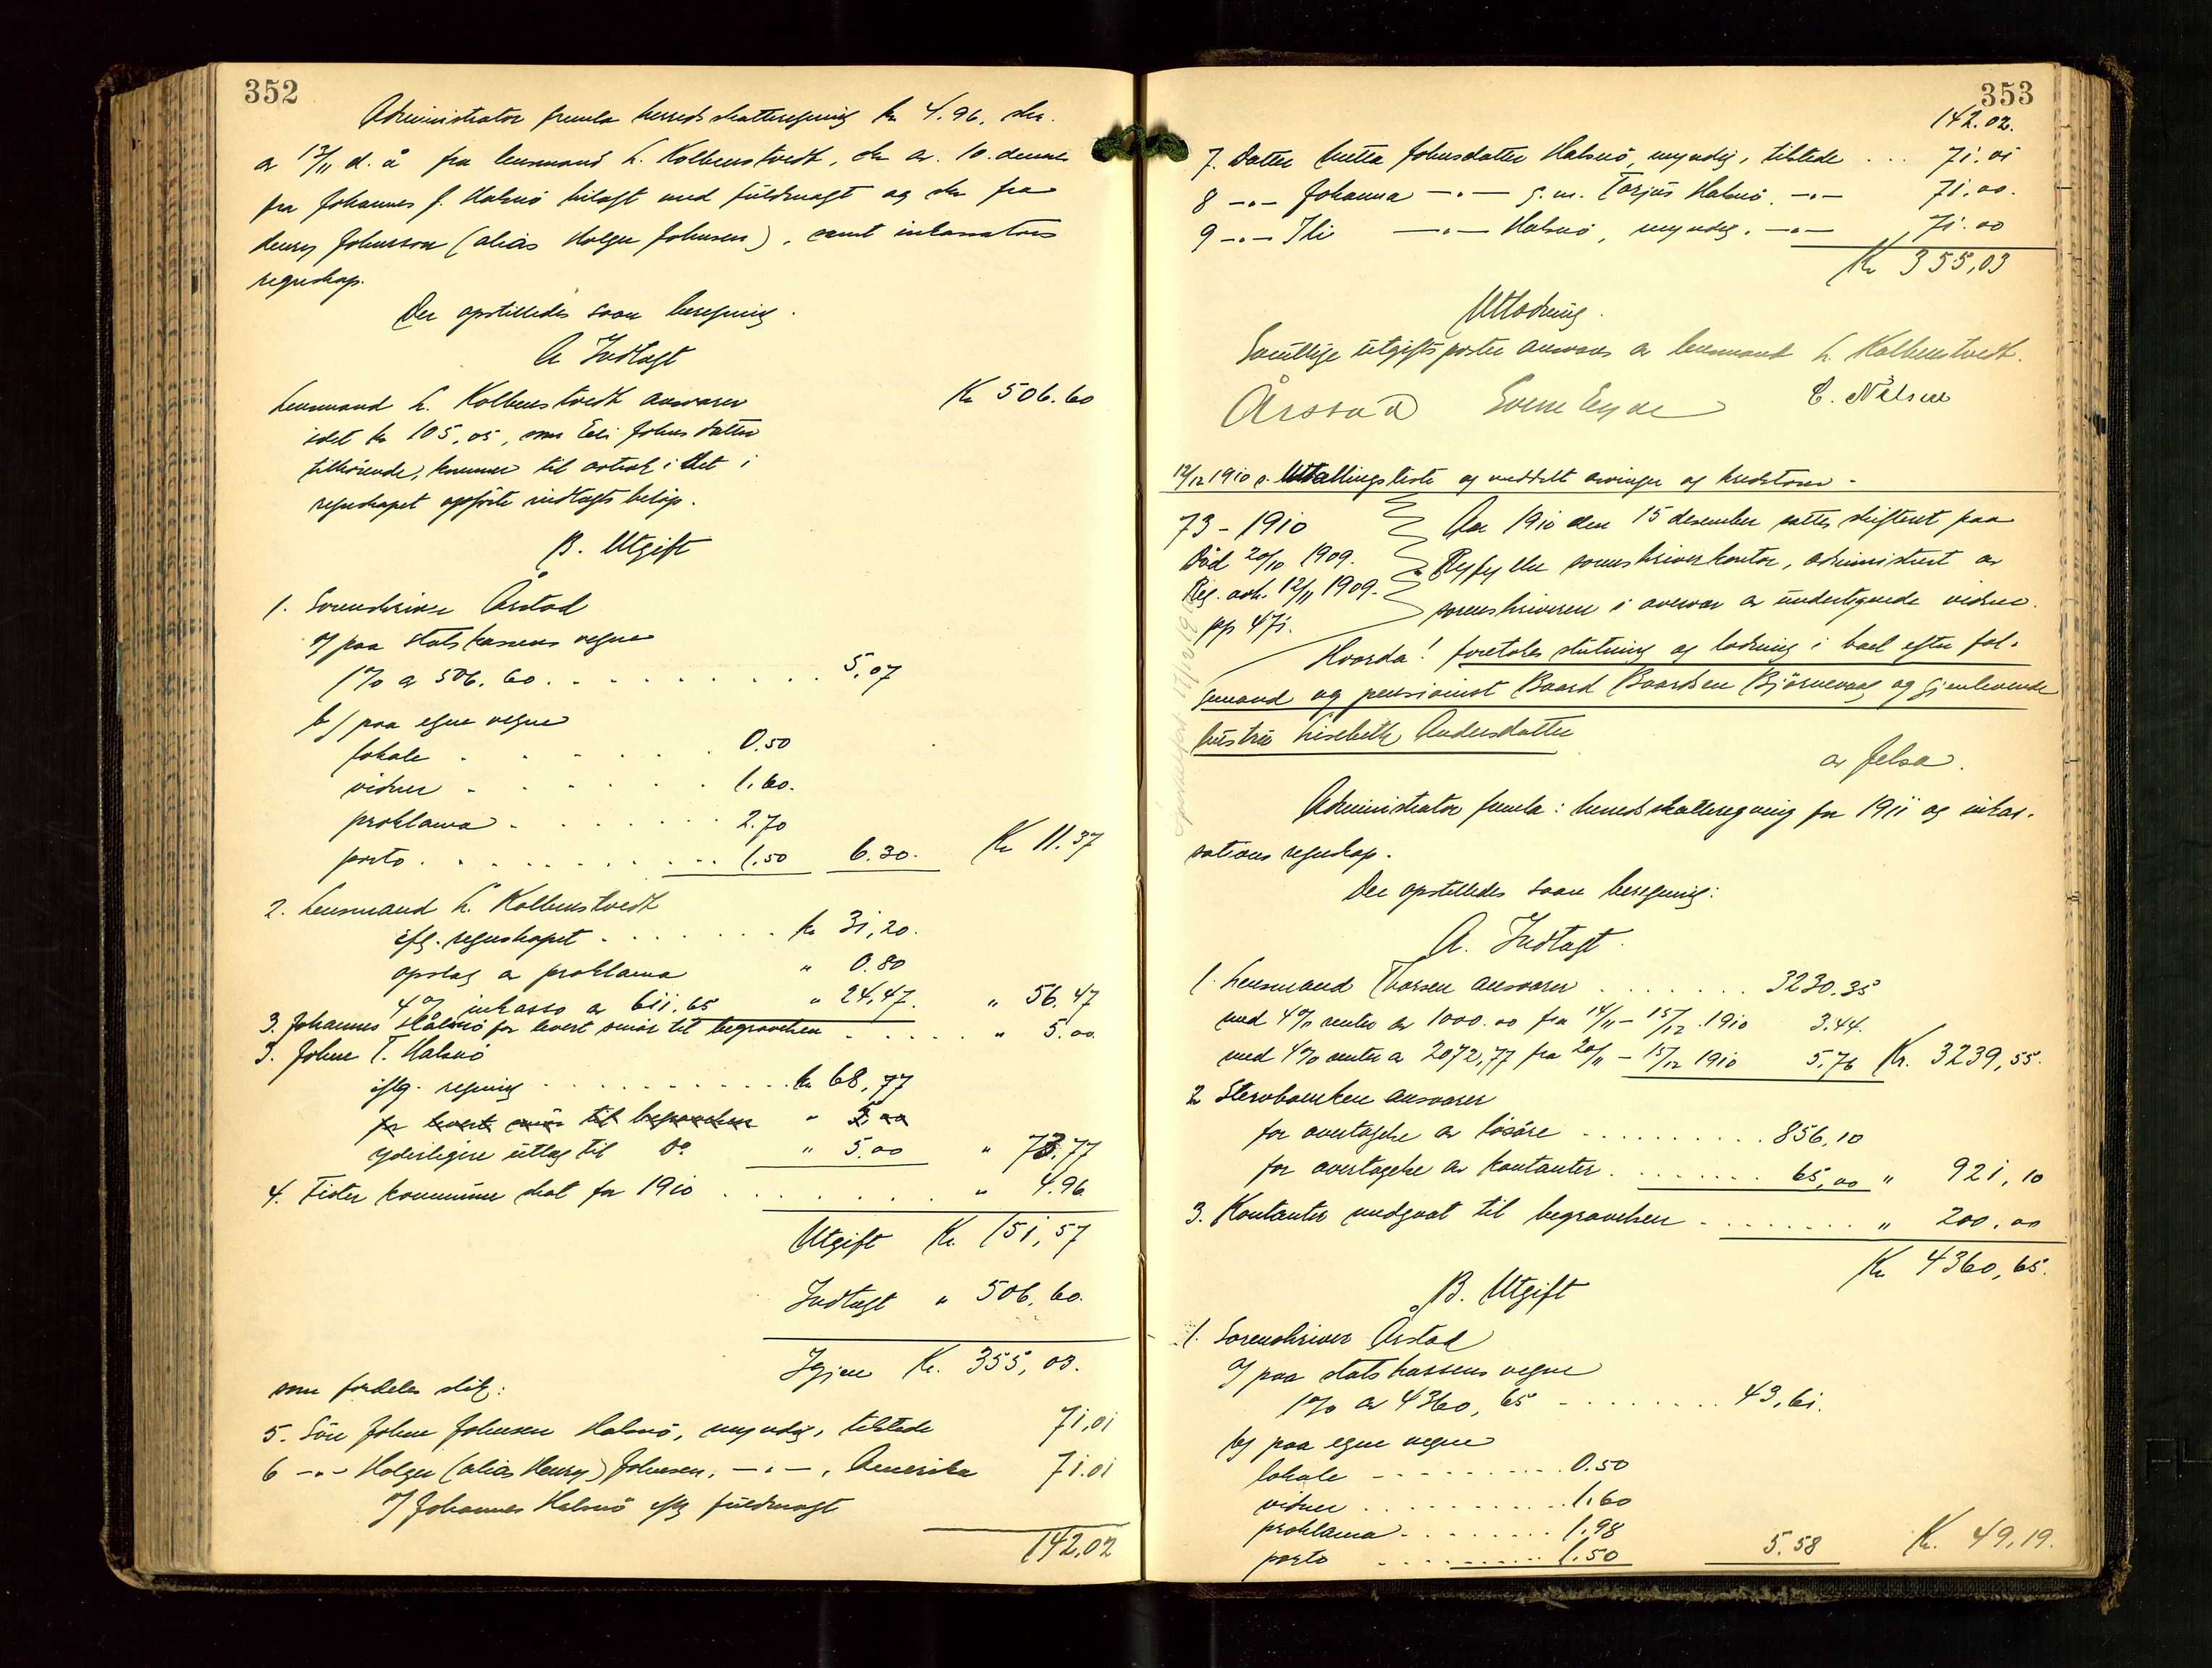 352
Administrator fremla herredsskatteregning kr 4.96, skr.
av 13/11 d. å fra lensmand L. Kolbenstvedt, skr av. 10. dennes
fra Johannes J. Halsnö bilagt med fuldmagt og skr fra
Henry Johnsson (alias Holger Johnsen), samt inkassations
regnskap.
Der opstilledes saan beregning.
A Indtægt
Lensmand L. Kolbenstvedt ansvarer Kr 506.60
idet kr 105,05, som Eli Johnsdatter
tilhörende, kommer til avtræk i det i
regnskapet opförte indtægts belöp.
B. Utgift
1. Sorenskriver Årstad
a/ paa statskassens vegne
1% av 506.60 . . . . . . . . . . 5,07
b/ paa egne vegne
lokale . . . . . . 0.50
vidner . . . . . . 1.60.
proklama . . . . . . 2.70
porto . . . . . . . . . . 1.50 6.30. Kr 11.37
2. Lensmand L. Kolbenstvedt
eflg. regnskapet . . . . . . kr 31,20.
opslag av proklama " 0.80
4% inkasso av 611.65 " 24,47. " 56.47
3. Johannes Halsnö for levert smör til begravelsen . . . . . . " 5.00.
3. Johne T. Halsnö
eflg. regning . . . . . . . . . . kr 68,77
for levert smör til begravelsen " 5,00
yderligere utlæg til Do " 5.00 " 73.77
4. Fister kommune skat for 1910 . . . . . . . . " 4.96
Utgift Kr. 151,57
Indtægt " 506.60.
Igjen Kr. 355,03.
som fordeles slik:
5. Sön Johne Johnsen Halsnö, myndig, tilstede 71,01
6 -"- Holger (alias Henry) Johnsen, -"-, Amerika 71.01
v/ Johannes Halsnö eflg fuldmagt
142,02
353
142.02.
7. Datter Mette Johnsdatter Halsnö, myndig, tilstede . . . 71.01
8 -"- Johanna -"- g.m. Torjus Halsnö. -"- 71.00.
9 -"- Eli -"- Halsnö, myndig, -"- 71.00
Kr 355,03
Utlodning.
Samtlige utgiftsposter ansvares av lensmand L. Kolbenstvedt.
Årstad Svein Eyde C. Nilsen
12/12 1910 s. Utbetallingsliste og meddelt arvinger og kreditorer.
73 - 1910
Död 20/10 1909.
Reg. anh. 12/11 1909.
pp 471.
Aar 1910 den 15 desember sattes skifteret paa
Ryfylke sorenskriverkontor, administrert av
sorenskriveren i overvær av undertegnede vidner.
Hvorda! foretokes slutning og lodning i boet efter fol-
gemand og pensionist Baard Baardsen Björnevaag og gjenlevende
hustru Lisebeth Andersdatter
av Jelsa.
Administrator fremla: herredsskatteregning for 1911 og inkas-
sations regnskap.
Der opstilledes saan beregning:
A. Indtægt.
1. Lensmand Thorsen ansvarer . . . . . . . 3230.35
med 4% renter av 1000.00 fra 14/11 - 15/12. 1910 3.44.
med 4% renter av 2072,77 fra 20/11 - 15/12 1910 5.76 Kr. 3239,55.
2 Stervboenken ansvarer
for overtagelse av lösöre . . . . . . . . . . 856,10
for overtagelse av kontanter . . . . . . . . 65,00 " 921,10
3. Kontanter medgaat til begravelsen . . . . . . . . " 200.00
Kr 4360,65.
B. Utgift
1. Sorenskriver Årstad
a/ paa statskassens vegne
1% av 4360,65 . . . . . . . . . 43,61.
b/ paa egne vegne
lokale . . . . . . . . . 0.50
vidner . . . . . . . . . . 1.60
proklama . . . . . . . . 1.98
porto . . . . . . . . . . 1.50 5.58 Kr. 49,19.